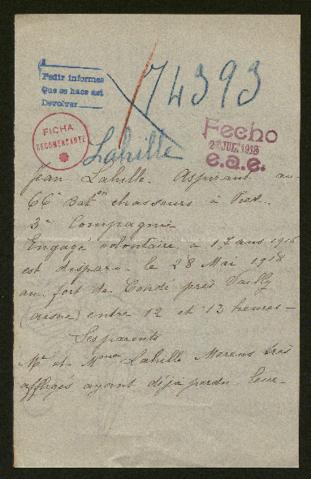 A
Pedir informes
Que se hace así
Devolver
74393
FICHA
Fecho
2 JUL. 1918
e.a.e.
Lahille
Jean Lahille. Aspirant au
66 Bat.on chasseurs à Pied
3e Compagnie
Engagé volontaire, à 17 ans 1916
est disparu le 28 Mai 1918
au fort de Condé près Vailly
(aisne) entre 12 et 13 heures-
Ses parents
Mr et Mme Lahille très
affligés ayant déjà perdu leur-